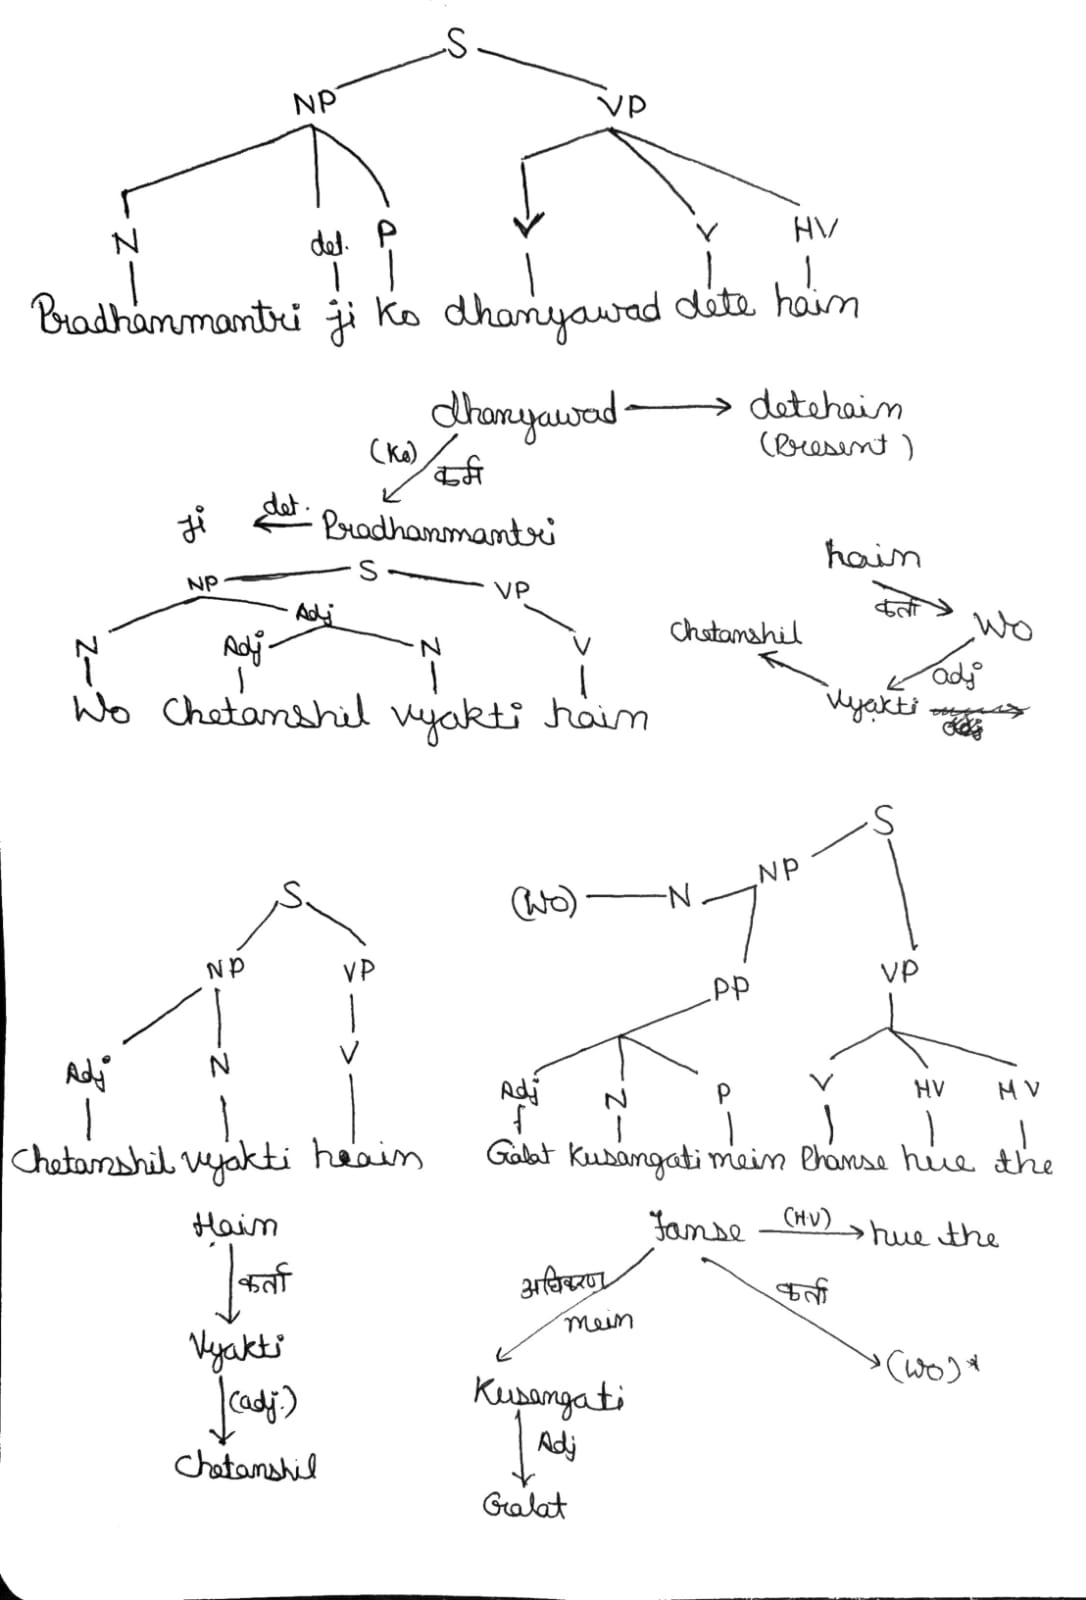 S
NP VP
N det. P V V HV
Pradhanmantri ji Ko dhanyawad dete hain
dhanyawad detehain
(Ko) कर्म (Present)
ji det. Pradhanmantri
NP S VP
N Adj
Adj N V
Wo Chetanshil vyakti hain
hain
कर्ता Wo
Chetanshil adj
Vyakti
S
NP VP
Adj N V
Chetanshil vyakti heain
Hain
कर्ता
Vyakti
(adj.)
Chetanshil
S
(Wo) N NP
PP VP
Adj N P V HV MV
Galat Kusangati mein Phanse hue the
Fanse (HV) hue the
अधिकरण कर्ता
mein
(Wo)*
Kusangati
Adj
Galat